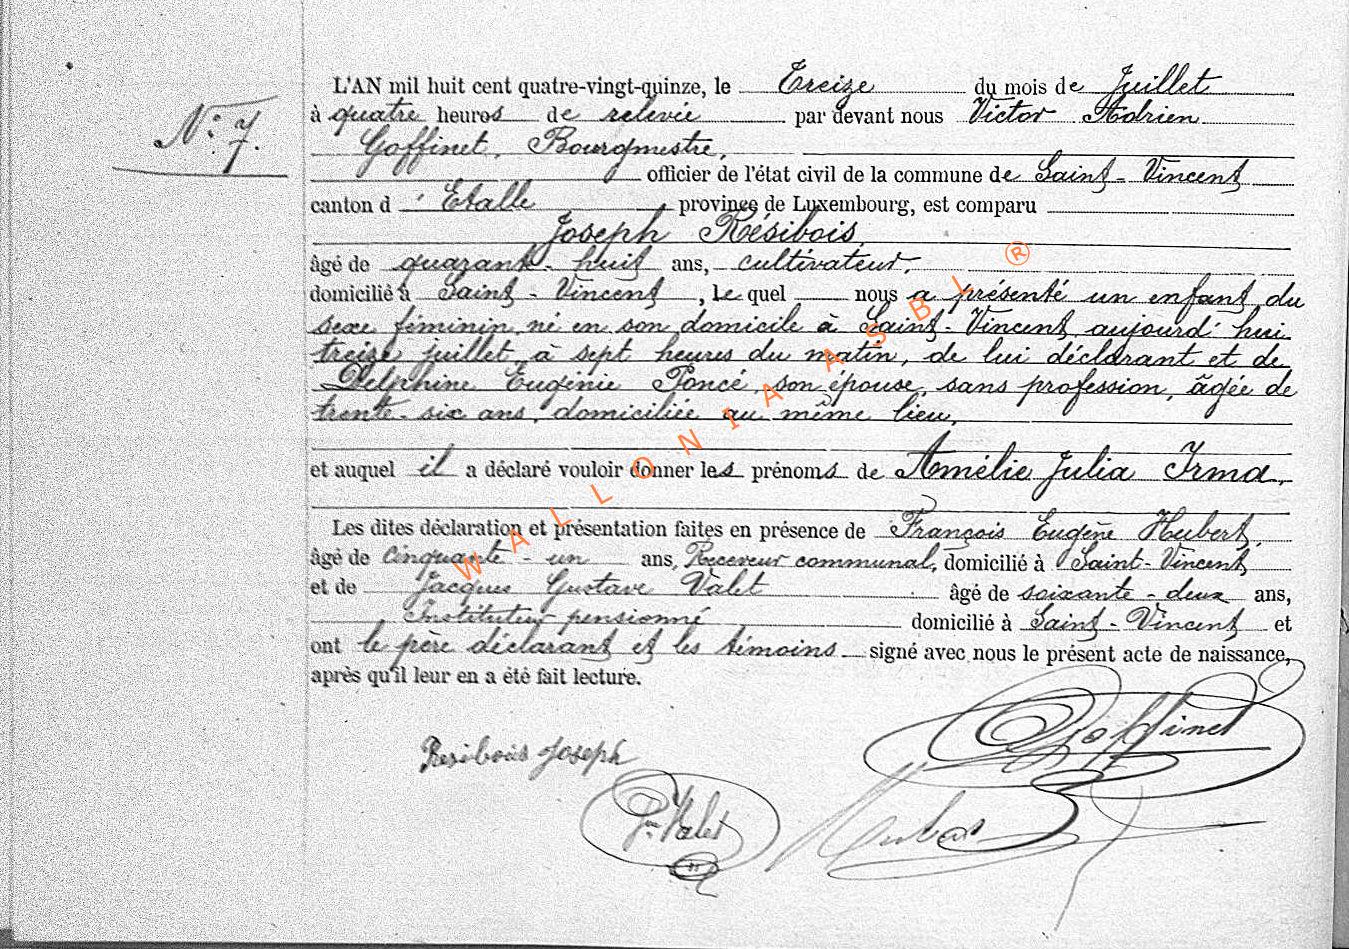 L'AN mil huit cent quatre-vingt-quinze, le Treize du mois de Juillet
N° 7.
à quatre heures de relevée par devant nous Victor Adrien
Goffinet, Bourgmestre,
officier de l'état civil de la commune de Saint-Vincent
canton d'Etalle province de Luxembourg, est comparu
Joseph Résibois,
âgé de quarante-huit ans, cultivateur,
domicilié à Saint-Vincent, le quel nous a présenté un enfant du
sexe féminin, né en son domicile à Saint-Vincent, aujourd'hui
treize juillet, à sept heures du matin, de lui déclarant et de
Delphine Eugénie Poncé, son épouse, sans profession, âgée de
trente-six ans, domiciliée au même lieu,
et auquel il a déclaré vouloir donner les prénoms de Amélie Julia Irma.
Les dites déclaration et présentation faites en présence de François Eugène Hubert,
âgé de cinquante-un ans, Receveur communal, domicilié à Saint-Vincent
et de Jacques Gustave Valet âgé de soixante-deux ans,
Instituteur pensionné domicilié à Saint-Vincent et
ont le père déclarant et les témoins signé avec nous le présent acte de naissance,
après qu'il leur en a été fait lecture.
Goffinet
Resibois Joseph
Valet
WALLONIA ASBL ®